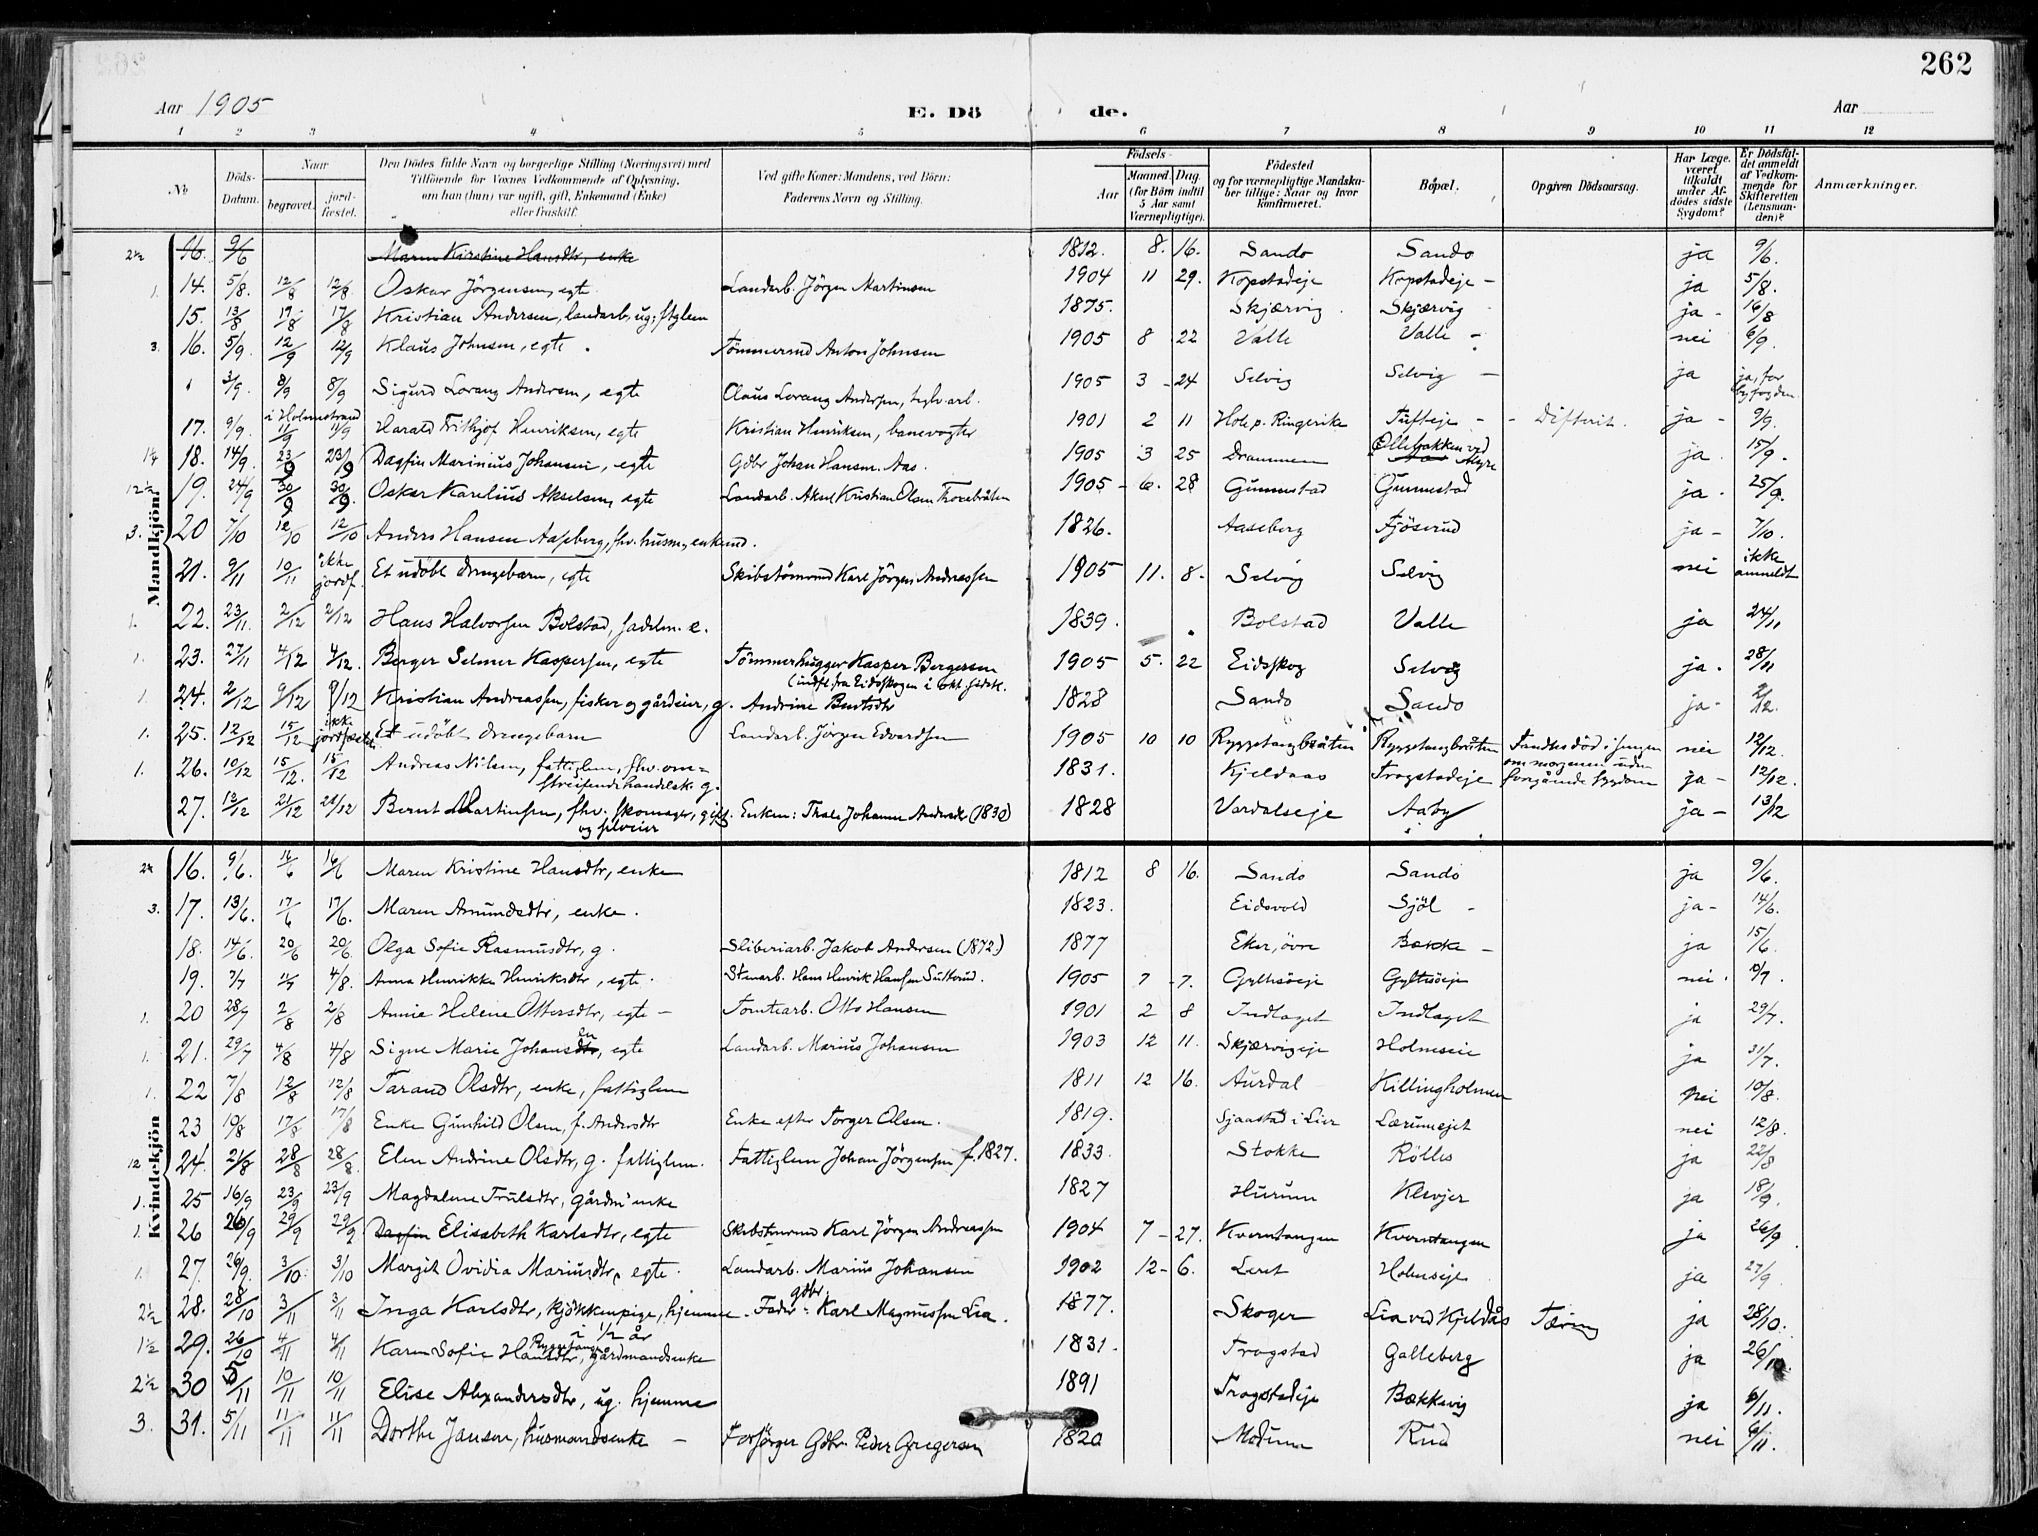 262
Aar 1905
E. Dö de.
Aar
1 2 3 4 5 6 7 8 9 10 11 12
No
Döds-Datum.
Naar
begravet.
jord-fæstet.
Den Dödes fulde Navn og borgerlige Stilling (Næringsvei) med
Tilföiende for Voxnes Vedkommende af Oplysning,
om han (hun) var ugift, gift, Enkemand (Enke)
eller fraskilt.
Ved gifte Koner: Mandens, ved Börn:
Faderens Navn og Stilling.
Födsels-
Aar
Maaned. Dag.
(for Börn indtil
5 Aar samt
Værnepligtige).
Födested
og for værnepligtige Mandska-
ber tillige: Naar og hvor
konfirmeret.
Bopæl.
Opgiven Dödsaarsag.
Har Læge
været
tilkaldt
under Af-
dödes sidste
Sygdom?
Er Dödsfal-
det anmeldt
af Vedkom-
mende for
Skifteretten
(Lensman-
den)?
Anmærkninger.
Mandkjön
16. 9/6 Maren Kirstine Hansdtr, enke 1812. 8. 16. Sando Sando ja 9/6.
1. 14. 5/8. 12/8 12/8. Oskar Jörgensen, egte. Landarb. Jörgen Martinsen 1904 11 29. Kopstadeje Kopstadeje - ja 5/8.
15. 13/8 17/8 17/8 Kristian Andersen, landarb., ug; ftglem 1875. Skjærvig Skjærvig ja - 16/8
3. 16. 5/9. 12/9 12/9 Klaus Johnsen, egte. Tömmermd Anton Johnsen 1905 8 22 Valle Valle - nei 6/9.
3/9. 8/9 8/9 Sigurd Lorang Andersen, egte Claus Lorang Andersen, teglv. arb. 1905 3 - 24 Selvig Selvig - ja ja, for byfogden
i Holmestrand
17. 9/9. 11/9 11/9 Harald Frithjof Henriksen, egte Kristian Henriksen, banevogter 1901 2 11 Hole p. Ringerike Tufteeje - - Difterit. ja - 9/9.
18. 14/9. 23/9 23/9 Dagfin Marinius Johansen, egte Gdbr Johan Hansen. Aas. 1905 3 25 Drammen Öllebakken ved Myre ja. 15/9.
12 1/2 19. 24/9 30/9 30/9. Oskar Karelius Akselsen, egte Landarb. Aksel Kristian Olsen 1905 - 6. 28 Gunnestad Gunnestad ja. 25/9.
3. 20 7/10 12/10 12/10 Anders Hansen Aaseberg, fhv. husm., enkemd. 1826. Aaseberg Fjöserud ja - 7/10.
21. 9/11 10/11 ikke jordf. Et udöbt drengebarn, egte Skibstömmd Karl Jörgen Andreassen 1905 11. 8. Selvig Selvig nei ikke anmeldt
1. 22. 23/11. 2/12 2/12 Hans Halvorsen Bolstad, sadelm. e. 1839. Bolstad Valle ja 24/11
1. 23. 27/11 4/12 4/12. Berger Selmer Kaspersen, egte Tömmerhugger Kasper Bergersen 1905 5. 22 Eidsskog Selvig ja. 28/11
(indfl. fra Eidsskogen i okt. sidstl.
1 24. 2/12 9/12 9/12 Kristian Andreassen, fisker og gårdeier, g. Andrine Berntsdtr 1828 Sando Sando ja - 2/12.
1. 25. 12/12 15/12 ikke jordfæstet Et udöbt drengebarn Landarb. Jörgen Edvardsen 1905 10 10 Ryggetangbråten Ryggetangbråten Fandtes död i sengen nei 12/12.
om morgenen uden foregående sygdom
1. 26. 10/12 15/12. 15/12 Andreas Nilsen, fattiglem, fhv. om- 1831. Kjeldaas Trogstadeje ja - 12/12.
streifende handelsk. g.
27. 13/12 21/12 21/12 Bernt Martinsen, fhv. skomager, gift. Enken: Thale Johanne Andersdtr (1830) 1828 Vardalseje Aaby ja - 13/12
og selveier
Kvindekjön
16. 9/6. 16/6 16/6 Maren Kristine Hansdtr, enke 1812 8 16. Sando Sando ja 9/6.
3. 17. 13/6. 17/6 17/6. Maren Amundsdtr, enke. 1823. Eidsvold Sjöl - ja - 14/6.
18. 14/6. 20/6 20/6. Olga Sofie Rasmusdtr, g. Sliberiarb. Jakob Andersen (1872.) 1877 Eker, övre Bække - ja 15/6.
19. 7/7 4/8. Anna Henrikke Henriksdtr, egte. Stenarb. Hans Henrik Hansen Sulterud. 1905 7 - 7. Gyltesöeje Gyltesöeje nei. 8/7.
1. 20 28/7 2/8 2/8 Annie Helene Ottersdtr, egte - Tomtearb. Otto Hansen 1901 2 8 Indlaget Indlaget ja 29/7.
1. 21. 29/7 4/8 4/8 Signe Marie Johansdtr, egte Landarb. Marius Johansen 1903 12 11. Skjærvigeje Holmseie ja 31/7.
1. 22 7/8 12/8 12/8 Tarand Olsdtr, enke, fattiglem 1811 12 16. Aurdal Killingholmen nei 10/8.
23 10/8 17/8 17/8 Enke Gunhild Olsen, f. Andersdtr Enke efter Torger Olsen. 1819. Sjaastad i Lier Lærumejet nei 12/8.
12 24. 21/8 28/8 28/8. Elen Andrine Olsdtr, g. fattiglem. Fattiglem Johan Jörgensen f. 1827. 1833. Stokke Rölles ja 22/8
1. 25 16/9 23/9 23/9 Magdalene Trulsdtr, gårdm. enke 1827 Hurum Klevjer ja 18/9.
1. 26 26/9 29/9 29/9 Dagfin Elisabeth Karlsdtr, egte Skibstömmd Karl Jörgen Andreassen 1904 7 - 27. Kverntangen Kverntangen ja 26/9.
1. 27. 26/9. 3/10. 3/10 Margit Ovidia Mariusdtr, egte. Landarb. Marius Johansen 1902 12 - 6. Leret Holmseje ja 27/9.
2 1/2 28. 28/10 3/11 3/11 Inga Karlsdtr, kjökkenpige, hjemme - Fader: gdbr. Karl Magnussen Lia. 1877. Skoger Lia ved Kjeldås Tæring ja 28/10.
i 1/2 år
1 1/2 29. 26/10 4/11 4/11 Karen Sofie Hansdtr, gårdmandsenke 1831. Trogstad Galleberg ja 26/10.
2 1/2 30 5/11 10/11 10/11 Elise Alexandersdtr, ug. hjemme 1891 Trogstadeje Bækkevig ja 6/11.
3. 31. 5/11 11/11 11/11 Dorthe Jansen, husmandsenke - Forsörger Gdbr. Peder Gregersen 1820 Modum Rud nei 6/11.